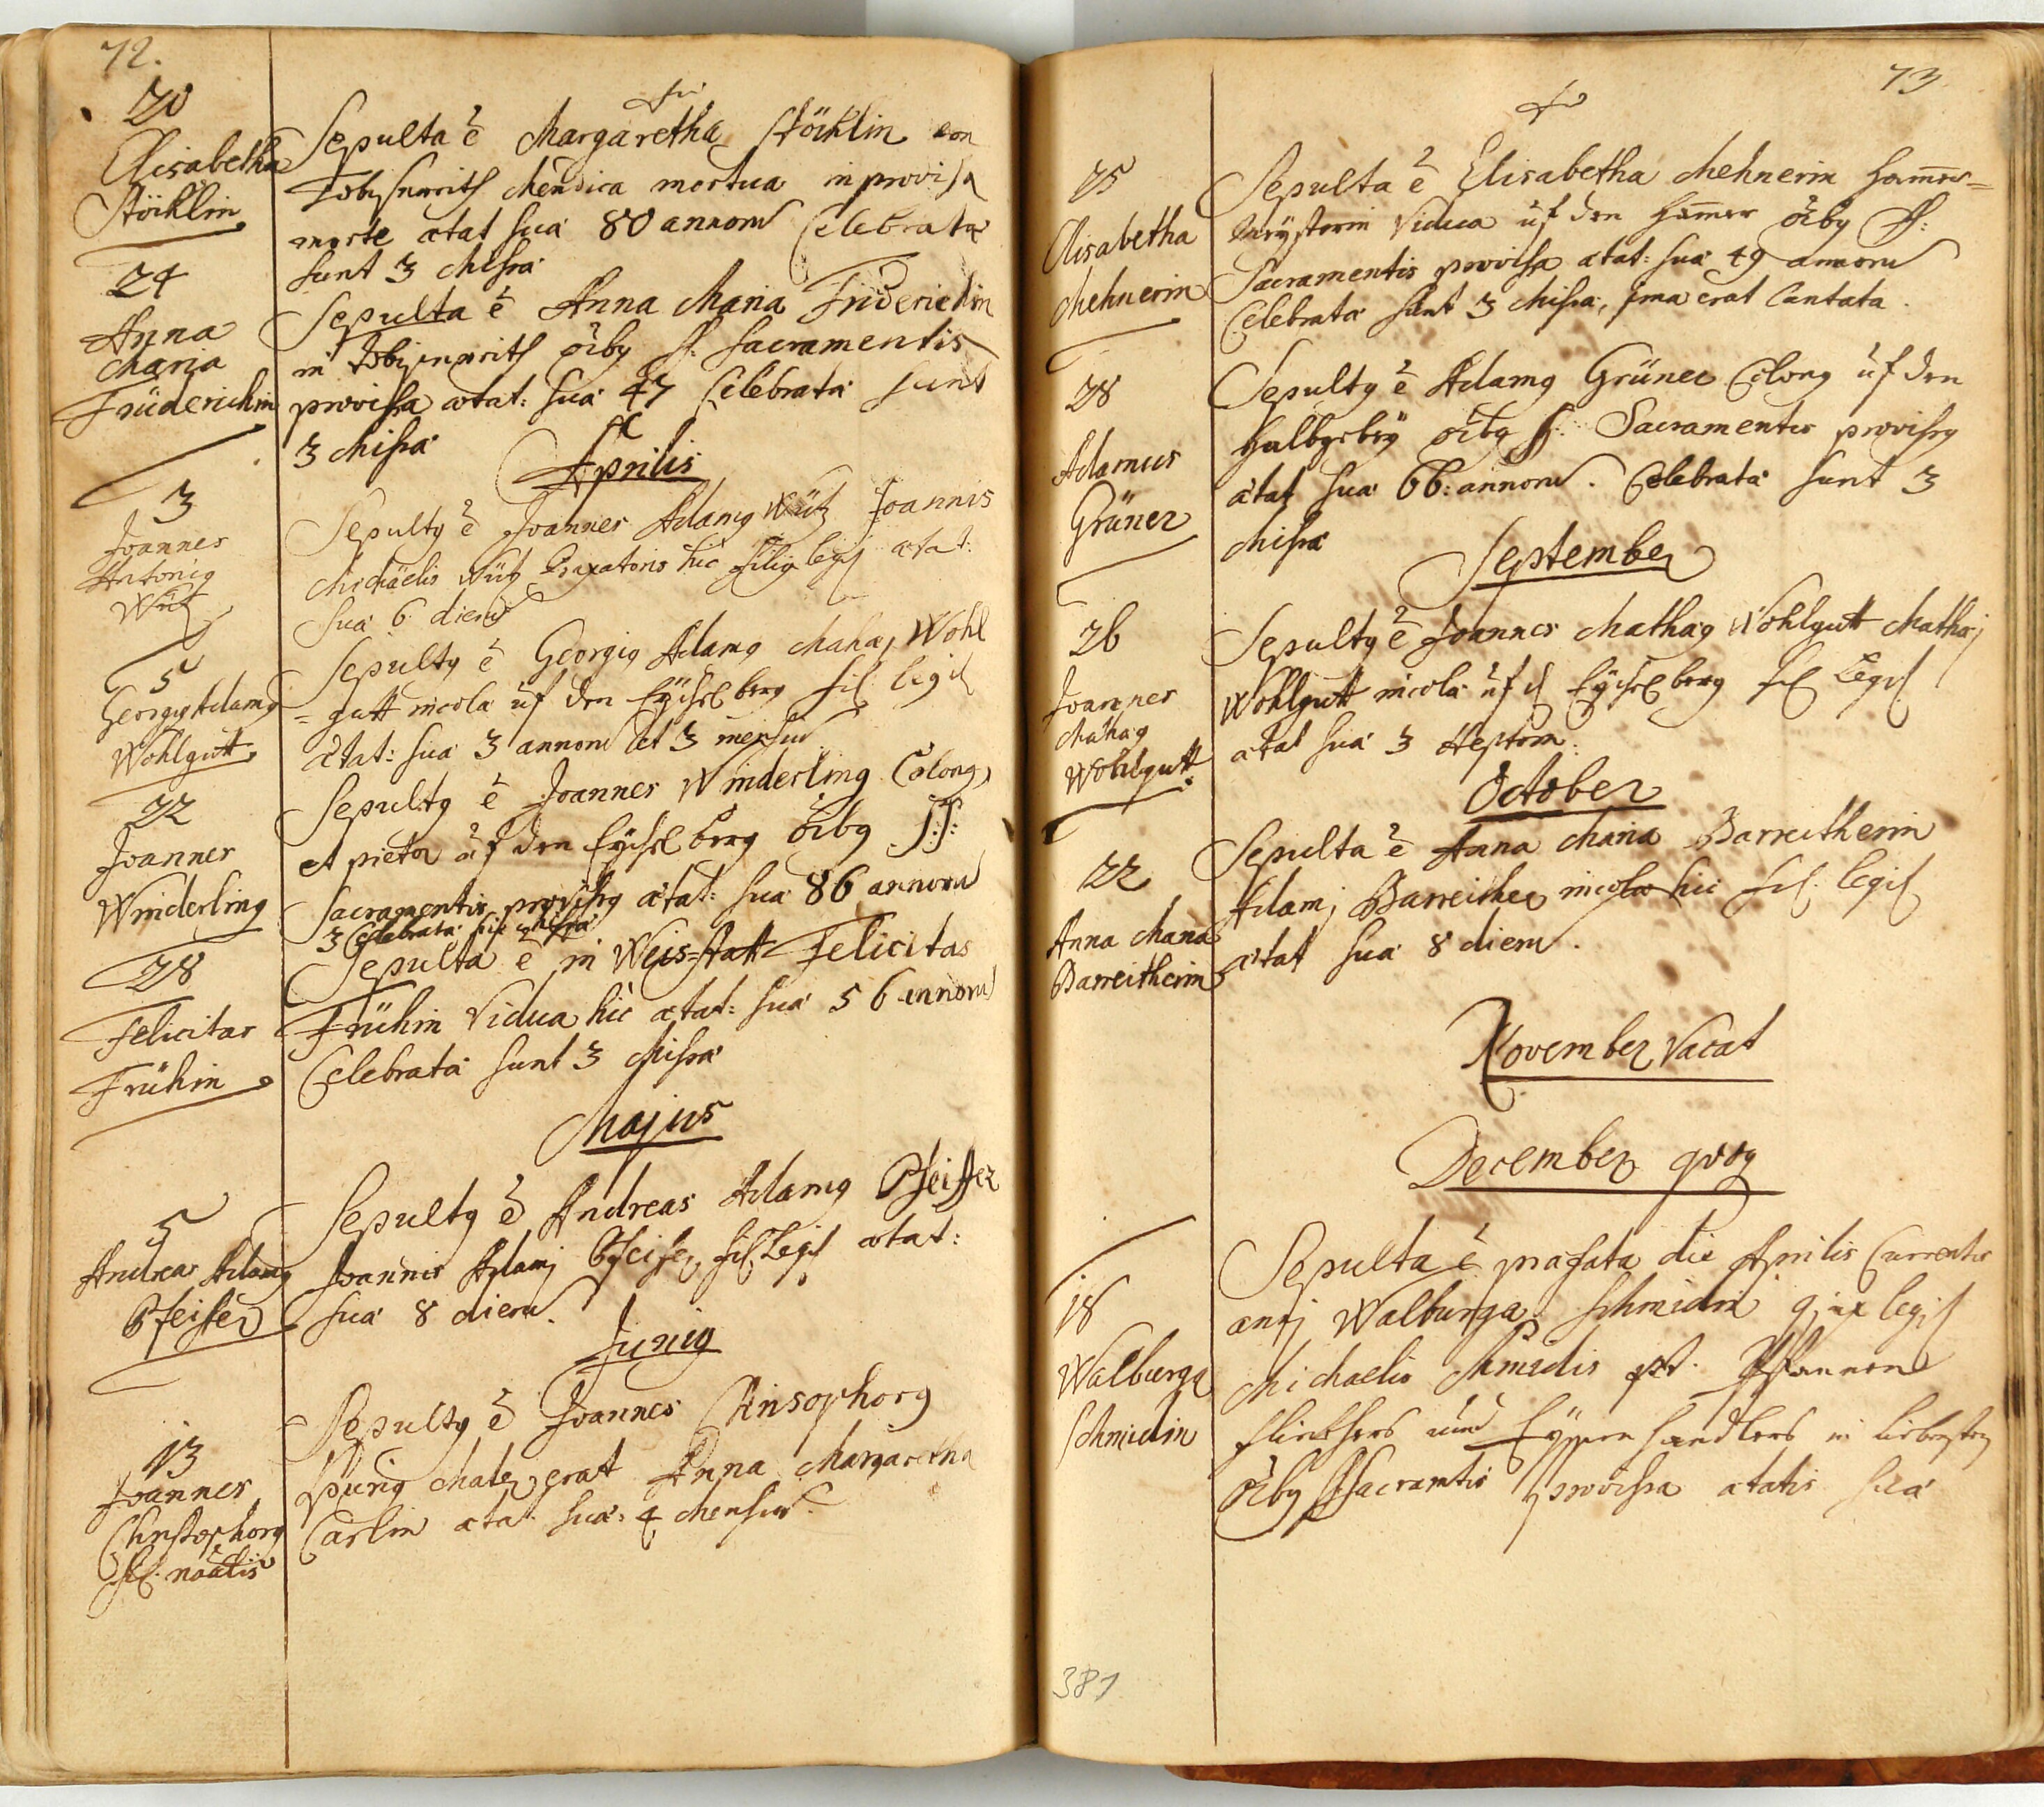 72.
20
Elisabetha
Stöcklin
Sepulta ē Margaretha Stöcklin von
Tobisenreith Mendica mortua improvisa
morte ætat suæ 80 annorũ Celebratæ
sunt 3 Missæ
24
Anna
Maria
Früderichin
Sepulta ē Anna Maria Friderichin
in Tobisenreith oībg SS. Sacramentis
provissa ætat: suæ 47 Celebratæ sunt
3 Missæ
Aprilis
3
Joannes
Antonig
Wütz
Sepultg ē Joannes Adamg Wütz Joannis
Michäelis Wütz Braxatoris hic filig legiſ ætat:
suæ 6 dierũ
5
Georgig Adamg
Wohlgutt
Sepultg ē Georgig Adamg Wohl
= gutt incolæ ůf den Eÿchelberg fil legiſ
Ætat: suæ 3 annorũ et 3 mensiũ
22
Joannes
Winderling
Sepultg ē Joannes Winderling Colong
et pictor ůf den Eÿchelberg oībg SS:
Sacramentis provissg ætat: suæ 86 annorũ
3 Celebratæ Missæ
28
Felicitas
Frühin
Sepulta ē in Weis=statt Felicitas
Frühin Vidua hic ætat: suæ 56 annorũ
Celebratæ sunt 3 Missæ
Majus
5
Andreas Adamg
Pfeiffer
Sepultg ē Andreas Adamg Pfeiffer
Joannis Adamj Pfeiffer fil Legiſ ætat:
suæ 8 dierũ.
Junig
13
Joannes
Christophorg
fil: naātis
Sepultg ē Joannes Christophorg
Spurig Mater erat Anna Margaretha
Carlin ætat suæ: 4 Mensiũ.
73
25
Elisabetha
Mehnerin
Sepulta ē Elisabetha Mehnerin Ham̄er=
Meÿsterin Vidua ůf den Ham̄er oībg SS:
Sacramentis provissa ætat: suæ 49 annorũ
Celebratæ sunt 3 Missæ, jma erat Cantata.
28
Adamus
Grüner
Sepultg ē Adamg Grüner Colong ůf den
oībg SS: Sacramentis provissg
ætat suæ 66: annorũ. Celebratæ sunt 3
Missæ
September
26
Joannes
Mathæg
Wohlgutt
Sepultg ē Joannes Mathæg Wohlgutt Mathæj
Wohlgutt incolæ ůf Eÿchelberg fil Legiſ
ætat suæ 3 Septem:
October
22
Anna Maria
Barreitherin
Sepulta ē Anna Maria Barreitherin
Adamj Barreither incolæ hic fil. legiſ
ætat suæ 8 dierũ.
November Vacat
December quog
18
Walburga
Schmidin
Sepulta ē præfata die Aprilis Currentis
anj Walburga Schmidin legiſ
Michaelis Schmidis Pfannen
flickhers und Handlers in
oībg SSacramtis provissa ætatis suæ
387